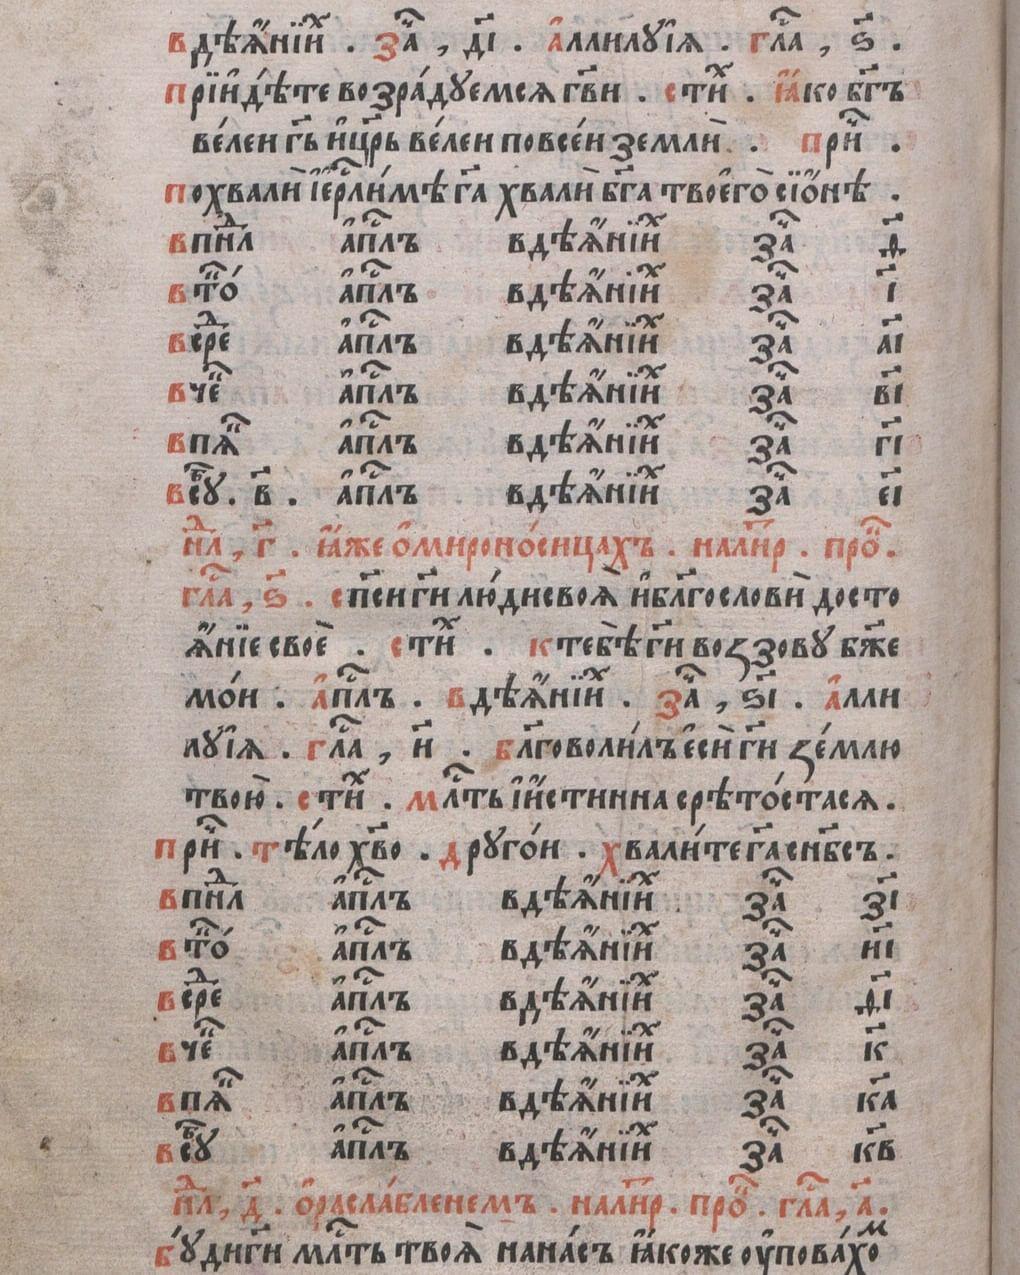 вдѣѧ́нїиⷯ . заⷱ҇ , д҃і . а҆ллилꙋ́їѧ . глаⷭ҇ , ѕ҃ .
прїиди́те возра́дꙋемсѧ гⷭ҇ви . стиⷯ . ꙗ҆́ко бг҃ъ
ве́леи гⷭ҇ь и҆цр҃ь ве́леи повсе́и земли̑ . приⷱ҇ .
похвали̑ і҆ерⷭ҇ли́мѣ гⷭ҇а хвали̑ бг҃а твоего̀ сїо́нѣ .
впнⷣл а҆пⷭ҇лъ вдѣѧ́нїиⷯ заⷱ҇ ѳ҃
втоⷬ҇ а҆пⷭ҇лъ вдѣѧ́нїиⷯ заⷱ҇ і҃
всреⷣ а҆пⷭ҇лъ вдѣѧ́нїиⷯ заⷱ҇ аі
вчеⷦ҇ а҆пⷭ҇лъ вдѣѧ́нїиⷯ заⷱ҇ в҃і
впѧⷦ҇ а҆пⷭ҇лъ вдѣѧ́нїиⷯ заⷱ҇ г҃і
всⷠ҇ꙋ . в҃ . а҆пⷭ҇лъ вдѣѧ́нїиⷯ заⷱ҇ є҃і
нⷣл , г҃ . ꙗ҆́же ѡ҆мироно́сицахъ . налиⷮр . проⷦ҇ .
глаⷭ҇ , ѕ҃ . сп҃си гⷭ҇и лю́ди своѧ̀ и҆бл҃гослови̑ досто
ѧ́нїе своѐ . стиⷯ . ктебѣ̀ гⷭ҇и воꙁзовꙋ̀ бж҃е
мо́и . а҆пⷭ҇лъ . вдѣѧ́нїиⷯ . заⷱ҇ , ѕ҃і . а҆лли
лꙋ́їѧ . глаⷭ҇ , и҃ . бл҃говоли́лъ є҆сѝ гⷭ҇и ꙁе́млю
твою̀ . стиⷯ . млⷭ҇ть і҆и҆́стинна срѣто́стасѧ .
приⷱ҇ . тѣ́ло хⷭ҇во . дрꙋго́и . хвали́те гⷭ҇а снб҃съ .
впнⷣл а҆пⷭ҇лъ вдѣѧ́нїиⷯ заⷱ҇ з҃і
втоⷬ҇ а҆пⷭ҇лъ вдѣѧ́нїиⷯ заⷱ҇ и҃і
всреⷣ а҆пⷭ҇лъ вдѣѧ́нїиⷯ заⷱ҇ ѳ҃і
вчеⷦ҇ а҆пⷭ҇лъ вдѣѧ́нїиⷯ заⷱ҇ к҃
впѧⷦ҇ а҆пⷭ҇лъ вдѣѧ́нїиⷯ заⷱ҇ ка
всⷠ҇ꙋ а҆пⷭ҇лъ вдѣѧ́нїиⷯ заⷱ҇ к҃в
нⷣл , д҃ . ѡ҆расла́бленемъ . налиⷮр . проⷦ҇ . глаⷭ҇ , а҃ .
бꙋ́ди гⷭ҇и млⷭ҇ть твоѧ̀ нана́съ ꙗ҆́коже ᲂу҆пова́хоⷨ